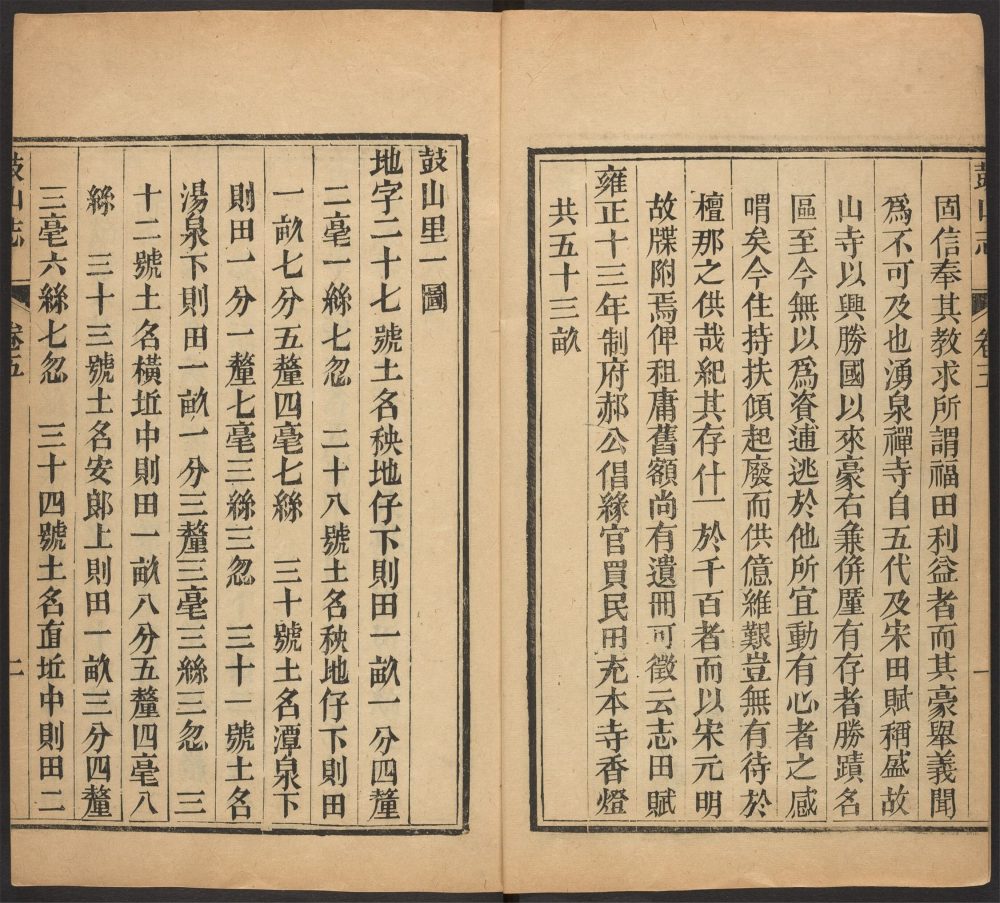 鼓山志 卷五 一
固信奉其教求所謂福田利益者而其豪舉義聞
爲不可及也湧泉禪寺自五代及宋田賦稱盛故
山寺以興勝國以來豪右兼併厪有存者勝蹟名
區至今無以爲資逋逃於他所宜動有心者之感
喟矣今住持扶傾起廢而供億維艱豈無有待於
檀那之供哉紀其存什一於千百者而以宋元明
故牒附焉俾租庸舊額尚有遺冊可徵云志田賦
雍正十三年制府郝公倡緣官買民田充本寺香燈
共五十三畝
鼓山里一圖
地字二十七號土名秧地仔下則田一畝一分四釐
二毫一絲七忽 二十八號土名秧地仔下則田
一畝七分五釐四毫七絲 三十號土名潭泉下
則田一分一釐七毫三絲三忽 三十一號土名
湯泉下則田一畝一分三釐三毫三絲三忽 三
十二號土名橫坵中則田一畝八分五釐四毫八
絲 三十三號土名安郞上則田一畝三分四釐
三毫六絲七忽 三十四號土名直坵中則田二
鼓山志 卷五 二